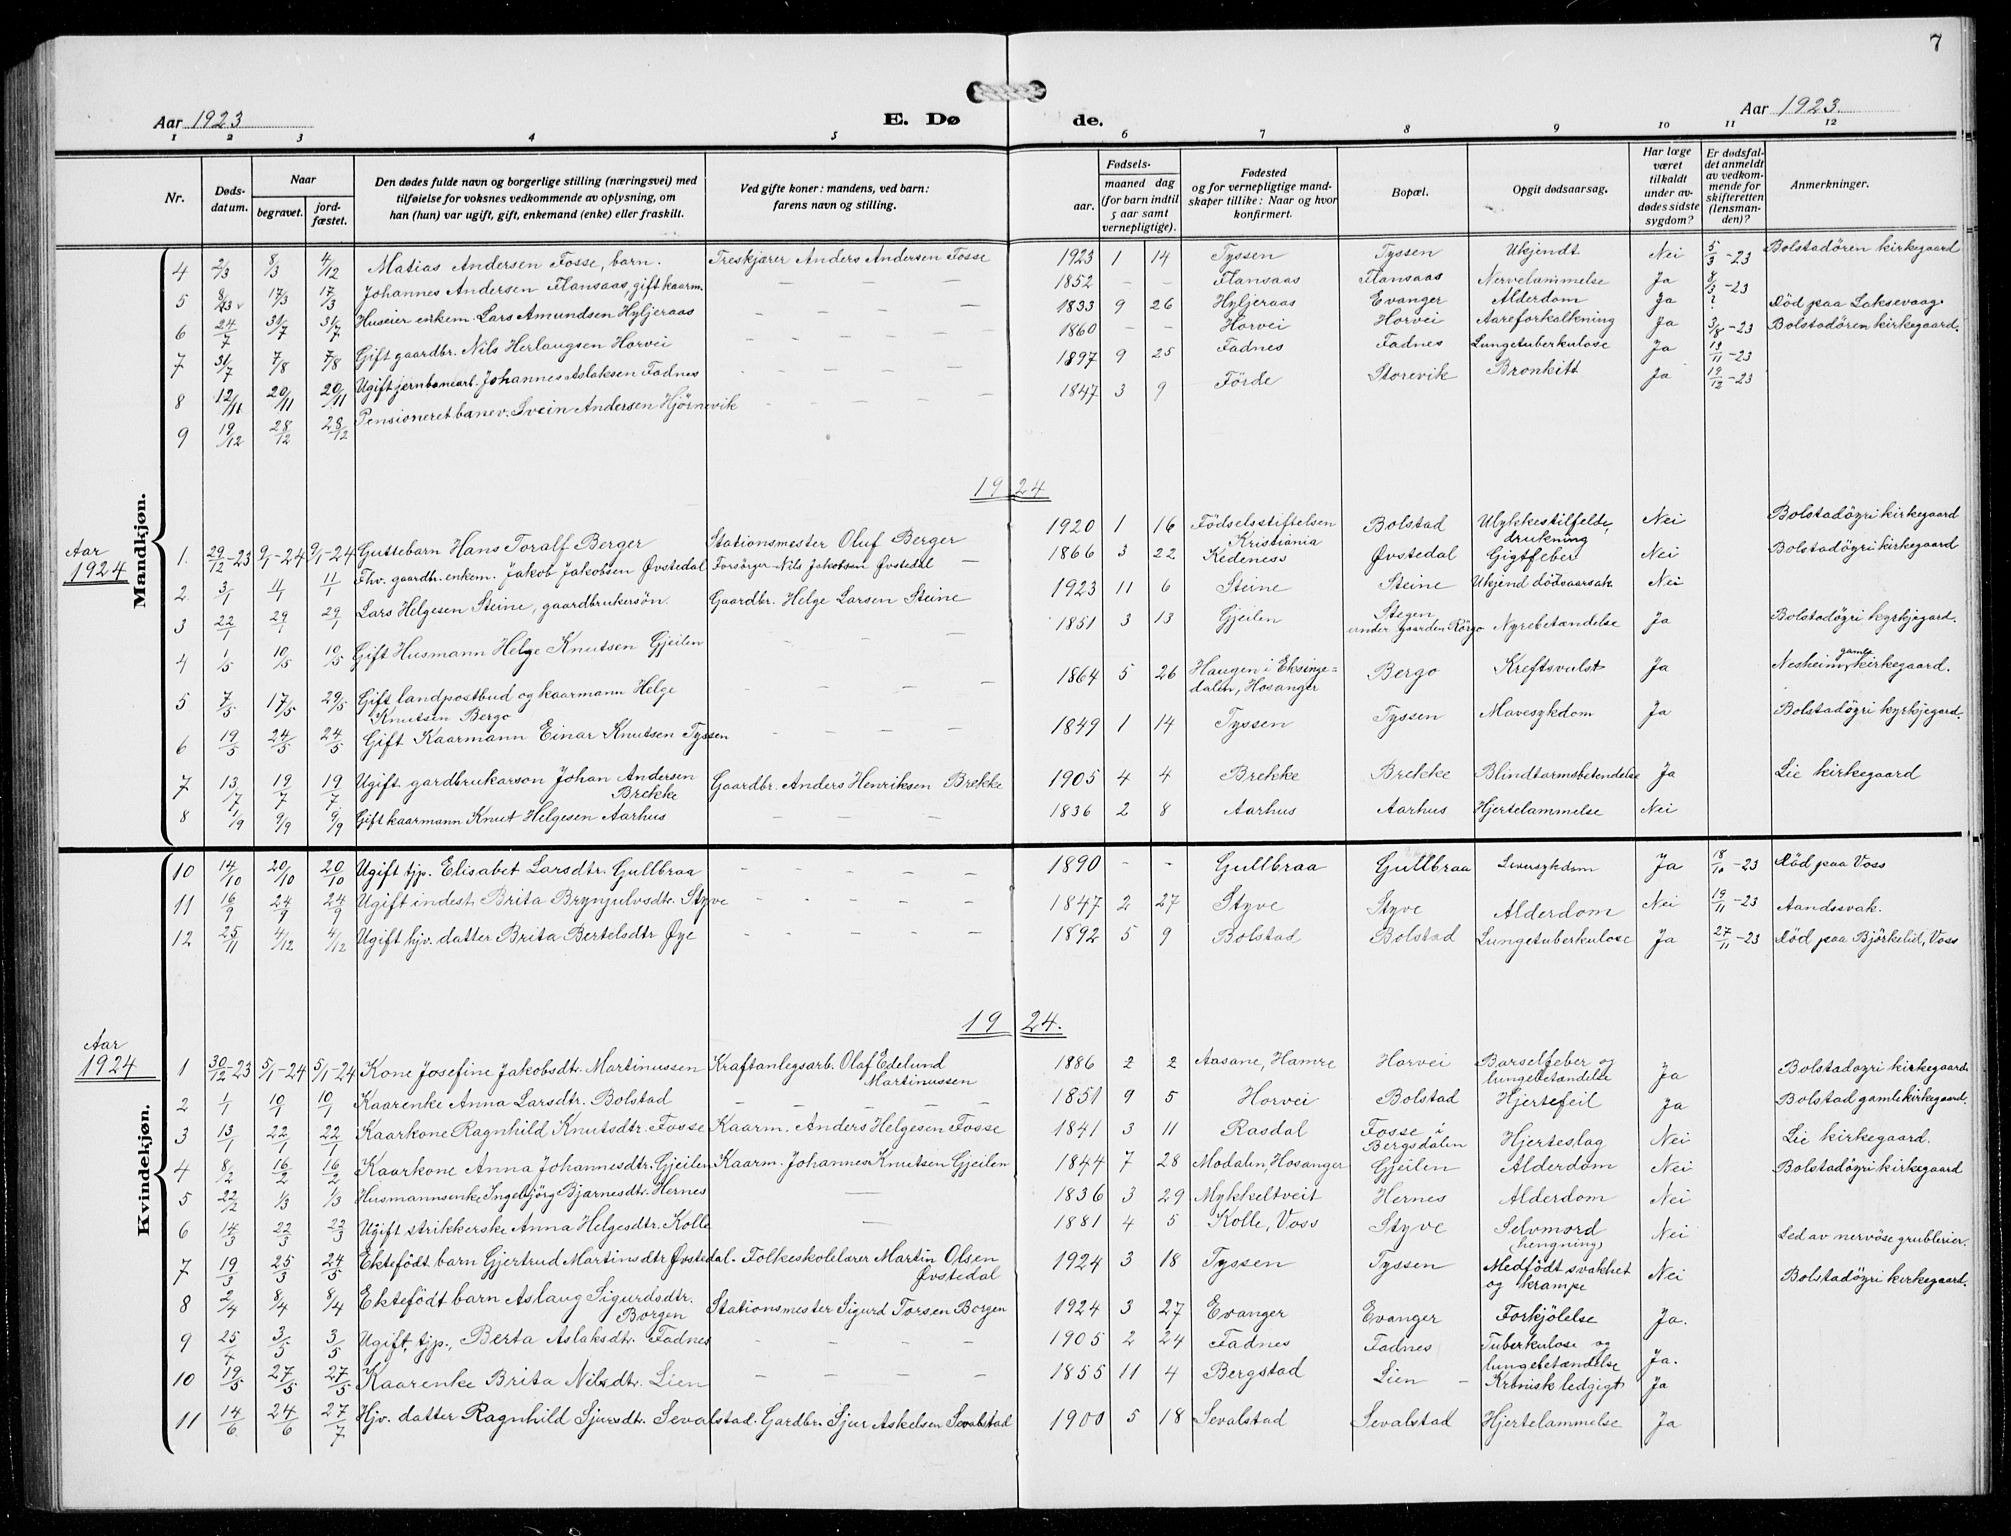 7
Aar 1923 E. Dø de. Aar 1923
1 2 3 4 5 6 7 8 9 10 11 12
Nr. Døds-datum. Naar begravet. jord-fæstet. Den dødes fulde navn og borgerlige stilling (næringsvei) med tilføielse for voksnes vedkommende av oplysning, om han (hun) var ugift, gift, enkemand (enke) eller fraskilt. Ved gifte koner: mandens, ved barn: farens navn og stilling. Fødsels- aar. maaned dag (for barn indtil 5 aar samt vernepligtige). Fødested og for vernepligtige mand-skaper tillike: Naar og hvor konfirmert. Bopæl. Opgit dødsaarsag. Har læge været tilkaldt under av-dødes sidste sygdom? Er dødsfal-det anmeldt av vedkom-mende for skifteretten (lensman-den)? Anmerkninger.
Mandkjøn.
4 2/3 8/3 4/12 Matias Andersen Fosse, barn. Treskjærer Anders Andersen Fosse 1923 1 14 Tyssen Tyssen Ukjendt Nei 5/3-23 Bolstadøren kirkegaard
5 17/3 17/3 Johannes Andersen Flansaas, gift kaarm. — — — — 1852 - - Flansaas Flansaas Nervelammelse Ja 8/3-23
6 24/7 31/7 31/7 Huseier enkem. Lars Amundsen Hyljeraas — — — — 1833 9 26 Hyljeraas Evanger Alderdom Ja ? Död paa Laksevaag.
7 31/7 7/8 7/8 Gift gaardbr. Nils Herlaugsen Horvei — — — — 1860 - - Horvei Horvei Aareforkalkning Ja 3/8-23 Bolstadøren kirkegaard.
8 12/11 20/11 20/11 Ugift jernbanearb. Johannes Aslaksen Fadnes — — — — 1897 9 25 Fadnes Fadnes Lungetuberkulose Ja 13/11-23
9 19/12 28/12 28/12 Pensioneret banev. Svein Andersen Hjörnevik — — — — 1847 3 9 Förde Storevik Bronkitt Ja 19/12-23
1924
Aar 1924
1. 29/12-23 9/1-24 9/1-24 Guttebarn Hans Toralf Berger Stationsmester Oluf Berger 1920 1 16 Födselsstiftelsen Kristiania Bolstad Ulykkestilfelde, drukning Nei Bolstadöyri kirkegaard
2 3/1 11/1 11/1 Fhv. gaardbr. enkem. Jakob Jakobsen Øvstedal Forsörger Nils Jakobsen Øvstedal — 1866 3 22 Kedeness Øvstedal Gigtfeber Nei Bolstadöyri kirkegaard
3 22/1 29/1 29/1 Lars Helgesen Steine, gaardbrukersön. Gaardbr. Helge Larsen Steine 1923 11 6 Steine Steine Ukjend dödsaarsak Nei
4 1/5 10/5 10/5 Gift Husmann Helge Knutsen Gjeilen — — — — 1851 3 13 Gjeilen Stegen under gaarden Rörgo Nyrebetændelse Ja Bolstadöyri kyrkjegard.
5 7/5 17/5 29/5 Gift landpostbud og kaarmann Helge Knutsen Bergo — — — — 1864 5 26 Haugen i Eksinge=dalen, Hosanger Bergo Kreftsvulst Ja Nesheim gamle kirkegaard.
6 19/5 24/5 24/5 Gift Kaarmann Einar Knutsen Tyssen — — — — 1849 1 14 Tyssen Tyssen Mavesykdom Ja Bolstadöyri kyrkjegard.
7 13/7 19/7 19/7 Ugift gardbrukarson Johan Andersen Brekke Gaardbr. Anders Henriksen Brekke 1905 4 4 Brekke Brekke Blindtarmsbetendelse Ja Lie kirkegaard
8 1/9 9/9 9/9 Gift kaarmann Knut Helgesen Aarhus — — — — 1836 2 8 Aarhus Aarhus Hjertelammelse Nei
Kvindekjøn.
10 14/10 20/10 20/10 Ugift tjp. Elisabet Larsdtr. Gullbraa - - - - - 1890 - - Gullbraa Gullbraa Leversykdom Ja 18/10-23 Död paa Voss
11 16/9 24/9 24/9 Ugift indest. Brita Brynjulvsdtr. Styve - - - - - 1847 2 27 Styve Styve Alderdom Nei 19/11-23 Aandssvak.
12 25/11 4/12 4/12 Ugift hjv. datter Brita Bertelsdtr Øye - - - - - 1892 5 9 Bolstad Bolstad Lungetuberkulose Ja 27/11-23 Död paa Björkelid, Voss
1924.
Aar 1924
1 30/12-23 5/1-24 5/1-24 Kone Josefine Jakobsdtr. Martinussen Kraftanlegsarb. Olaf Edelund Martinussen 1886 2 2 Aasane, Hamre Horvei Barselfeber og lungebetændelse Ja Bolstadoyri kirkegaard.
2 1/1 10/1 10/1 Kaarenke Anna Larsdtr. Bolstad — — — — — 1851 9 5 Horvei Bolstad Hjertefeil Ja Bolstad gamle kirkegaard.
3 13/1 22/1 22/1 Kaarkone Ragnhild Knutsdtr. Fosse Kaarm. Anders Helgesen Fosse 1841 3 11 Rasdal Fosse i Bergsdalen Hjerteslag Nei Lie kirkegaard.
4 8/2 16/2 16/2 Kaarkone Anna Johannesdtr. Gjeilen Kaarm. Johannes Knutsen Gjeilen 1844 7 28 Modalen, Hosanger Gjeilen Alderdom Nei Bolstadöyri kirkegaard
5 22/2 1/3 1/3 Husmannsenke Ingebjörg Bjarnesdtr. Hernes — 1836 3 29 Mykkeltveit Hernes Alderdom Nei
6 14/3 22/3 22/3 Ugift strikkerske Anna Helgesdtr. Kolle — 1881 4 5 Kolle, Voss Styve Selvmord (hengning) Nei Led av nervöse grublerier.
7 19/3 25/3 24/5 Ektefödt barn Gjertrud Martinsdtr Øvstedal. Folkeskolelærer Martin Olsen Øvstedal 1924 3 18 Tyssen Tyssen Medfödt svakhet og krampe Nei Bolstadöyri kirkegaard.
8 2/4 8/4 8/4 Ektefödt barn Aslaug Sigurdsdtr. Borgen Stationsmester Sigurd Torsen Borgen 1924 3 27 Evanger Evanger Forkjölelse Ja.
9 25/4 3/5 3/5 Ugift, tjp., Berta Aslaksdtr. Fadnes — — — — 1905 2 24 Fadnes Fadnes Tuberkulose og lungebetændelse Ja.
10 19/5 27/5 27/5 Kaarenke Brita Nilsdtr. Lien — — — — — 1855 11 4 Bergstad Lien — Kronisk ledgigt Ja
11 14/6 24/6 27/7 Hjv. datter Ragnhild Sjursdtr. Sevalstad. Gardbr. Sjur Askelsen Sevalstad 1900 5 18 Sevalstad Sevalstad Hjertelammelse Ja